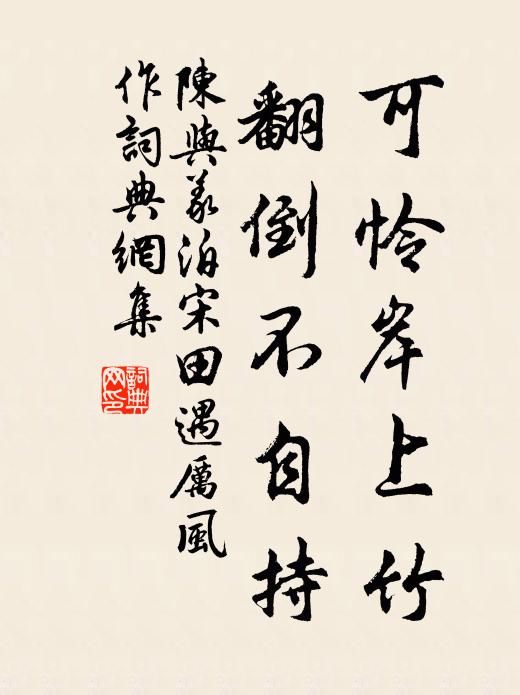 可怜岸上竹
翻倒不自持
陳與義泊宋田遇厲風
作詞典網集
詞典網印